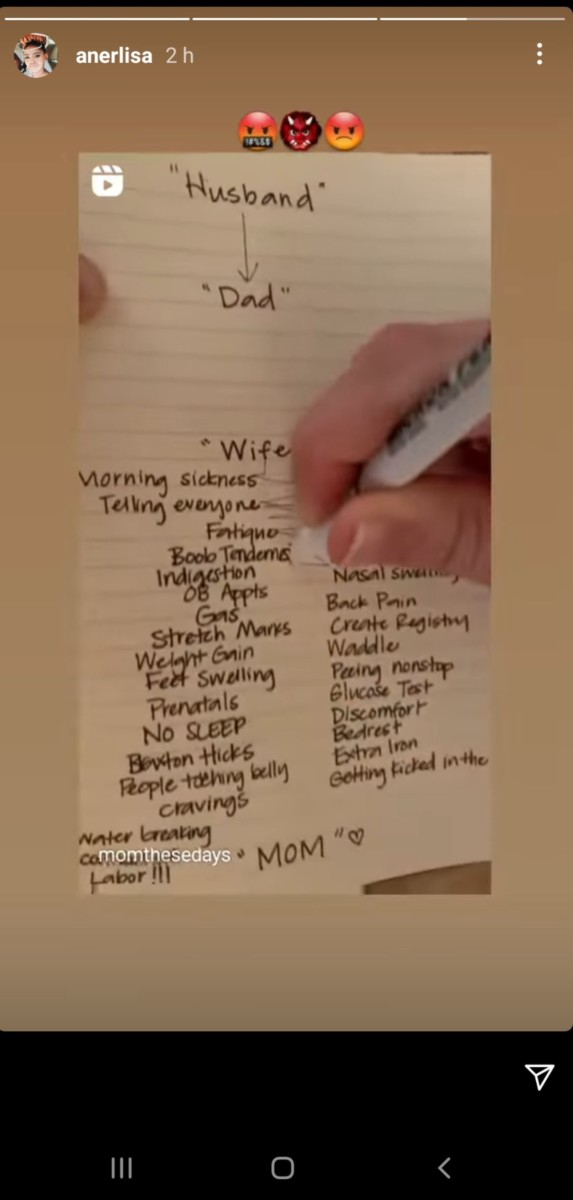 anerlisa 2 h
"Husband"
"Dad"
"Wife
Morning sickness
Telling everyone
Fatigue
Boob Tenderness
Indigestion
OB Appts
Gas
Stretch Marks
Weight Gain
Feet Swelling
Prenatals
NO SLEEP
Braxton Hicks
People toching belly
cravings
Nasal
Back Pain
Create Registry
Waddle
Peeing nonstop
Glucose Test
Discomfort
Bedrest
Extra Iron
Getting kicked in the
Water breaking
momthesedays
Labor !!!
"MOM"♡